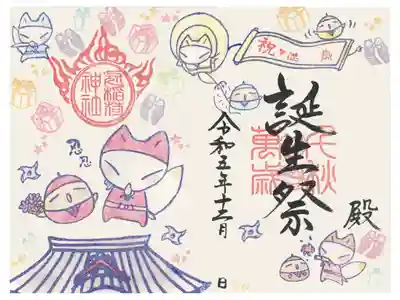 祝 満 歳
殿
誕生祭
千秋
萬歳
令和五年十二月 日
冠稲荷
神社
忍忍